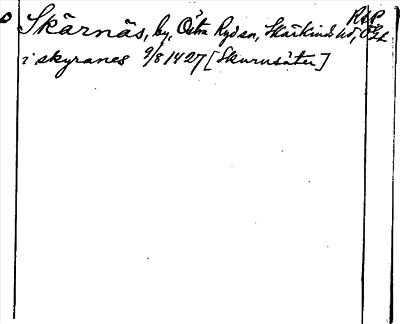 RAP
Skärnäs, by, Östra Ryd sn, Skärkinds hd, ÖGL
i skyranes 9/8 1427 [Skurusäter]